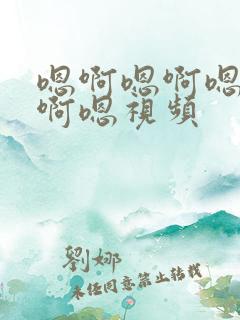 嗯啊嗯啊嗯
啊嗯視頻
劉娜
未经同意禁止转载